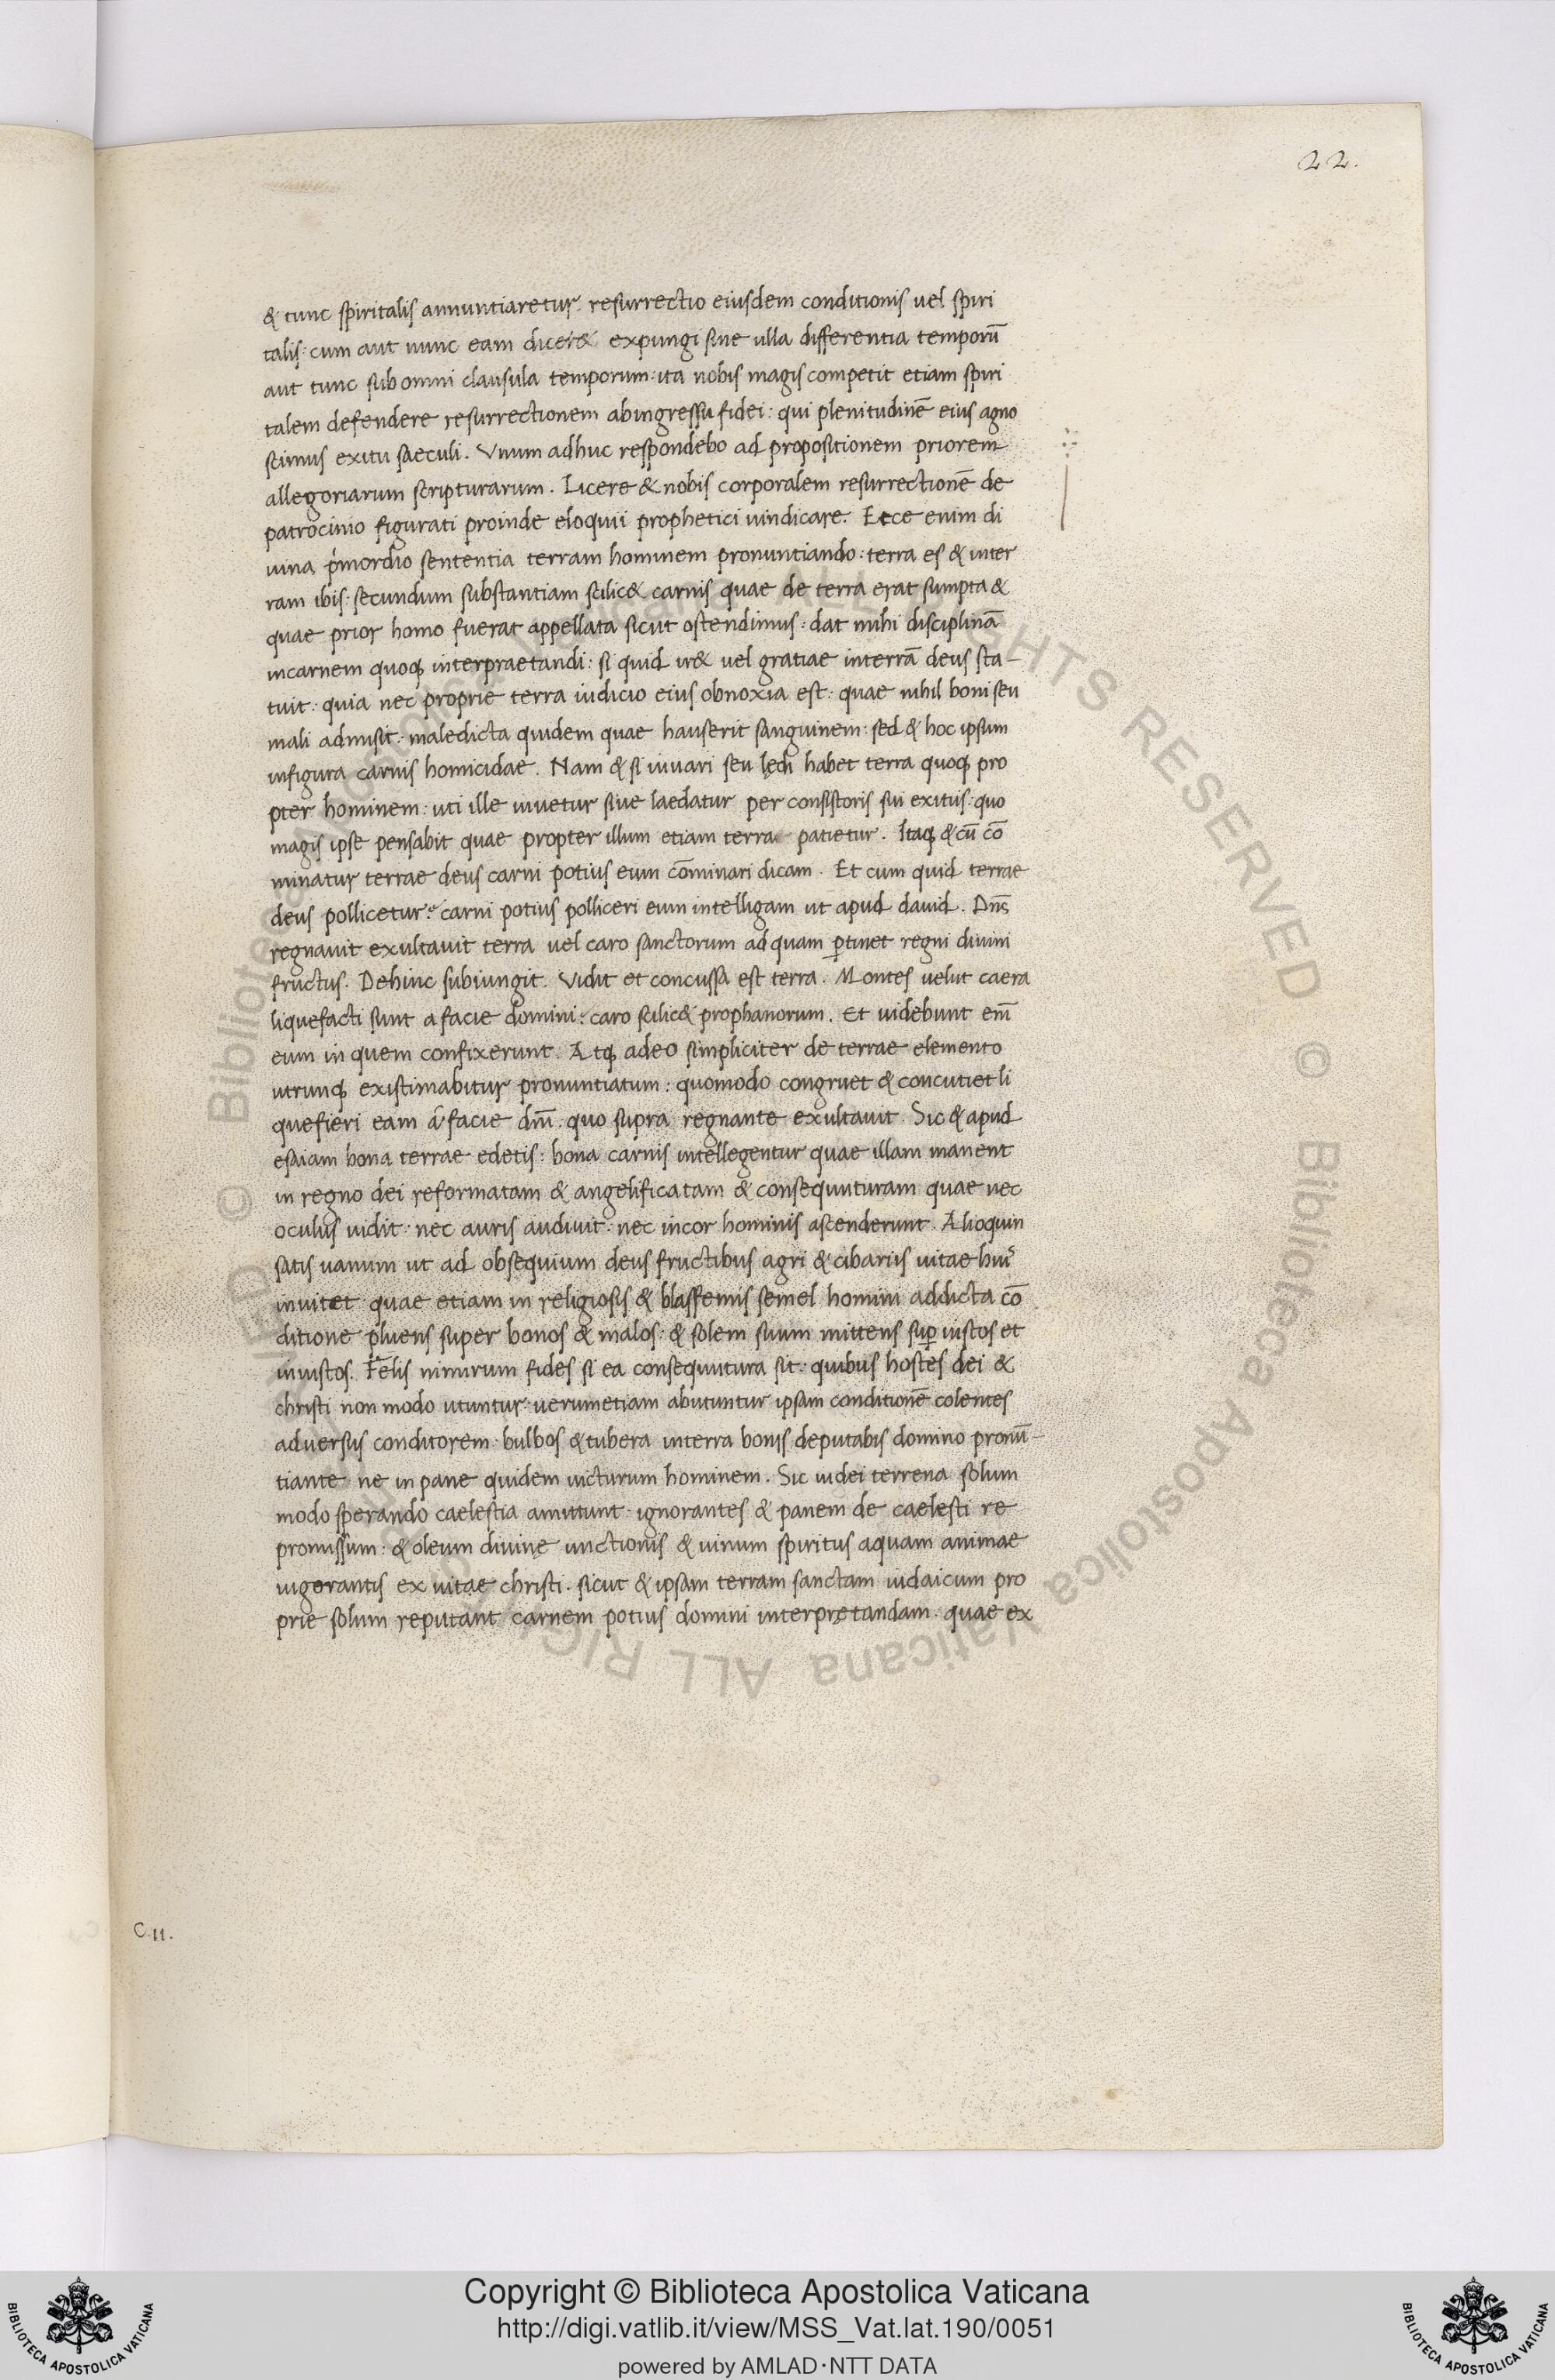 22.
& tunc spiritalis annuntiaretur. resurrectio eiusdem conditionis uel spiri
talis: cum aut nunc eam dicer& expungi sine ulla differentia temporū
aut tunc sub omni clausula temporum: ita nobis magis competit etiam spiri
talem defendere resurrectionem abingressu fidei: qui plenitudinē eius agno
scimus exitu saeculi. Vnum adhuc respondebo ad propositionem priorem
allegoriarum scripturarum. Licere & nobis corporalem resurrectionē de
patrocinio figurati proinde eloquii prophetici uindicare. Ecce enim di
uina pͥmordio sententia terram hominem pronuntiando: terra es & inter
ram ibis: secundum substantiam scilic& carnis quae de terra erat sumpta &
quae prior homo fuerat appellata sicut ostendimus: dat mihi disciplinā
incarnem quoqꝫ interpraetandi: si quid ir& uel gratiae interrā deus sta-
tuit: quia nec proprie terra iudicio eius obnoxia est: quae nihil boni seu
mali admisit: maledicta quidem quae hauserit sanguinem: sed & hoc ipsum
infigura carnis homicidae. Nam & si iuuari seu lędi habet terra quoqꝫ pro
pter hominem: uti ille iuuetur siue laedatur per consistoris sui exitus: quo
magis ipse pensabit quae propter illum etiam terra patietur. Itaqꝫ & cū cō
minatur terrae deus carni potius eum cōminari dicam. Et cum quid terrae
deus pollicetur: carni potius polliceri eum intelligam ut apud dauid. Dn̄s
regnauit exultauit terra uel caro sanctorum ad quam ꝑtinet regni diuini
fructus. Dehinc subiungit. Vidit et concussa est terra. Montes uelut caera
liquefacti sunt a facie domini: caro scilic& prophanorum. Et uidebunt em̄
eum in quem confixerunt. Atqꝫ adeo simpliciter de terrae elemento
utrunqꝫ existimabitur pronuntiatum: quomodo congruet & concutiet li
quefieri eam á facie dm̄. quo supra regnante exultauit. Sic & apud
esaiam bona terrae edetis: bona carnis intellegentur quae illam manent
in regno dei reformatam & angelificatam & consequuturam quae nec
oculus uidit: nec auris audiuit: nec incor hominis ascenderunt. Alioquin
satis uanum ut ad obsequium deus fructibus agri & cibariis uitae huiꝰ
inuitet quae etiam in religiosis & blasfemis semel homini addicta cō
ditione pluens super bonos & malos: & solem suum mittens suꝑ iustos et
iniustos. Felis nimirum fides si ea consequutura sit: quibus hostes dei &
christi non modo utuntur: uerumetiam abutuntur ipsam conditionē colentes
aduersus conditorem: bulbos & tubera interra bonis deputabis domino pronū-
tiante ne in pane quidem uicturum hominem. Sic iudei terrena solum
modo sperando caelestia amittunt: ignorantes & panem de caelesti re
promissum: & oleum diuinę unctionis & uinum spiritus aquam animae
uigorantis ex uitae christi. sicut & ipsam terram sanctam iudaicum pro
prie solum reputant carnem potius domini interprętandam. quae ex
C.11.
Copyright © Biblioteca Apostolica Vaticana
http://digi.vatlib.it/view/MSS_Vat.lat.190/0051
powered by AMLAD·NTT DATA